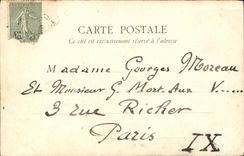 CARTE POSTALE
Ce côté est exclusivement réservé à l'adresse
Madame Georges Moreau
Et Monsieur G. Mort. Aux V......
3 rue Richer
Paris
IX